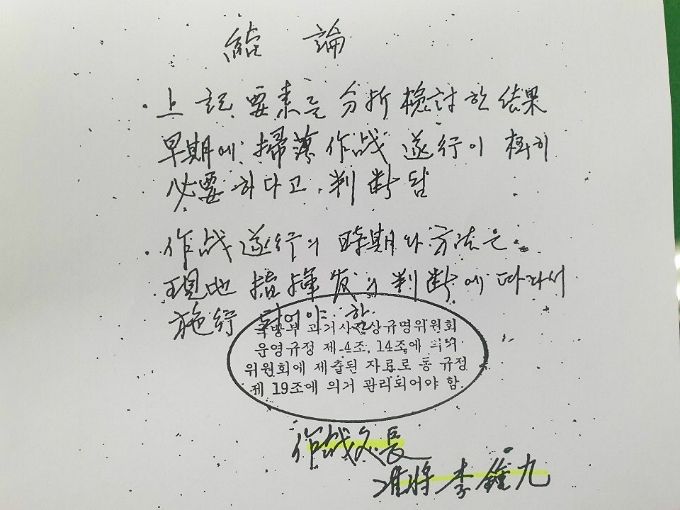 結 論
· 上記 要素를 分析 檢討한 結果
早期에 掃蕩作战 遂行이 極히
必要하다고 判断됨
· 作战遂行의 時期와 方法은
現地 指揮官의 判断에 따라서
施行 되어야 함
국방부 과거사진상규명위원회
운영규정 제 4조, 14조에 의거
위원회에 제출된 자료로 동 규정
제 19조에 의거 관리되어야 함.
作战処長
准將 李鍾九